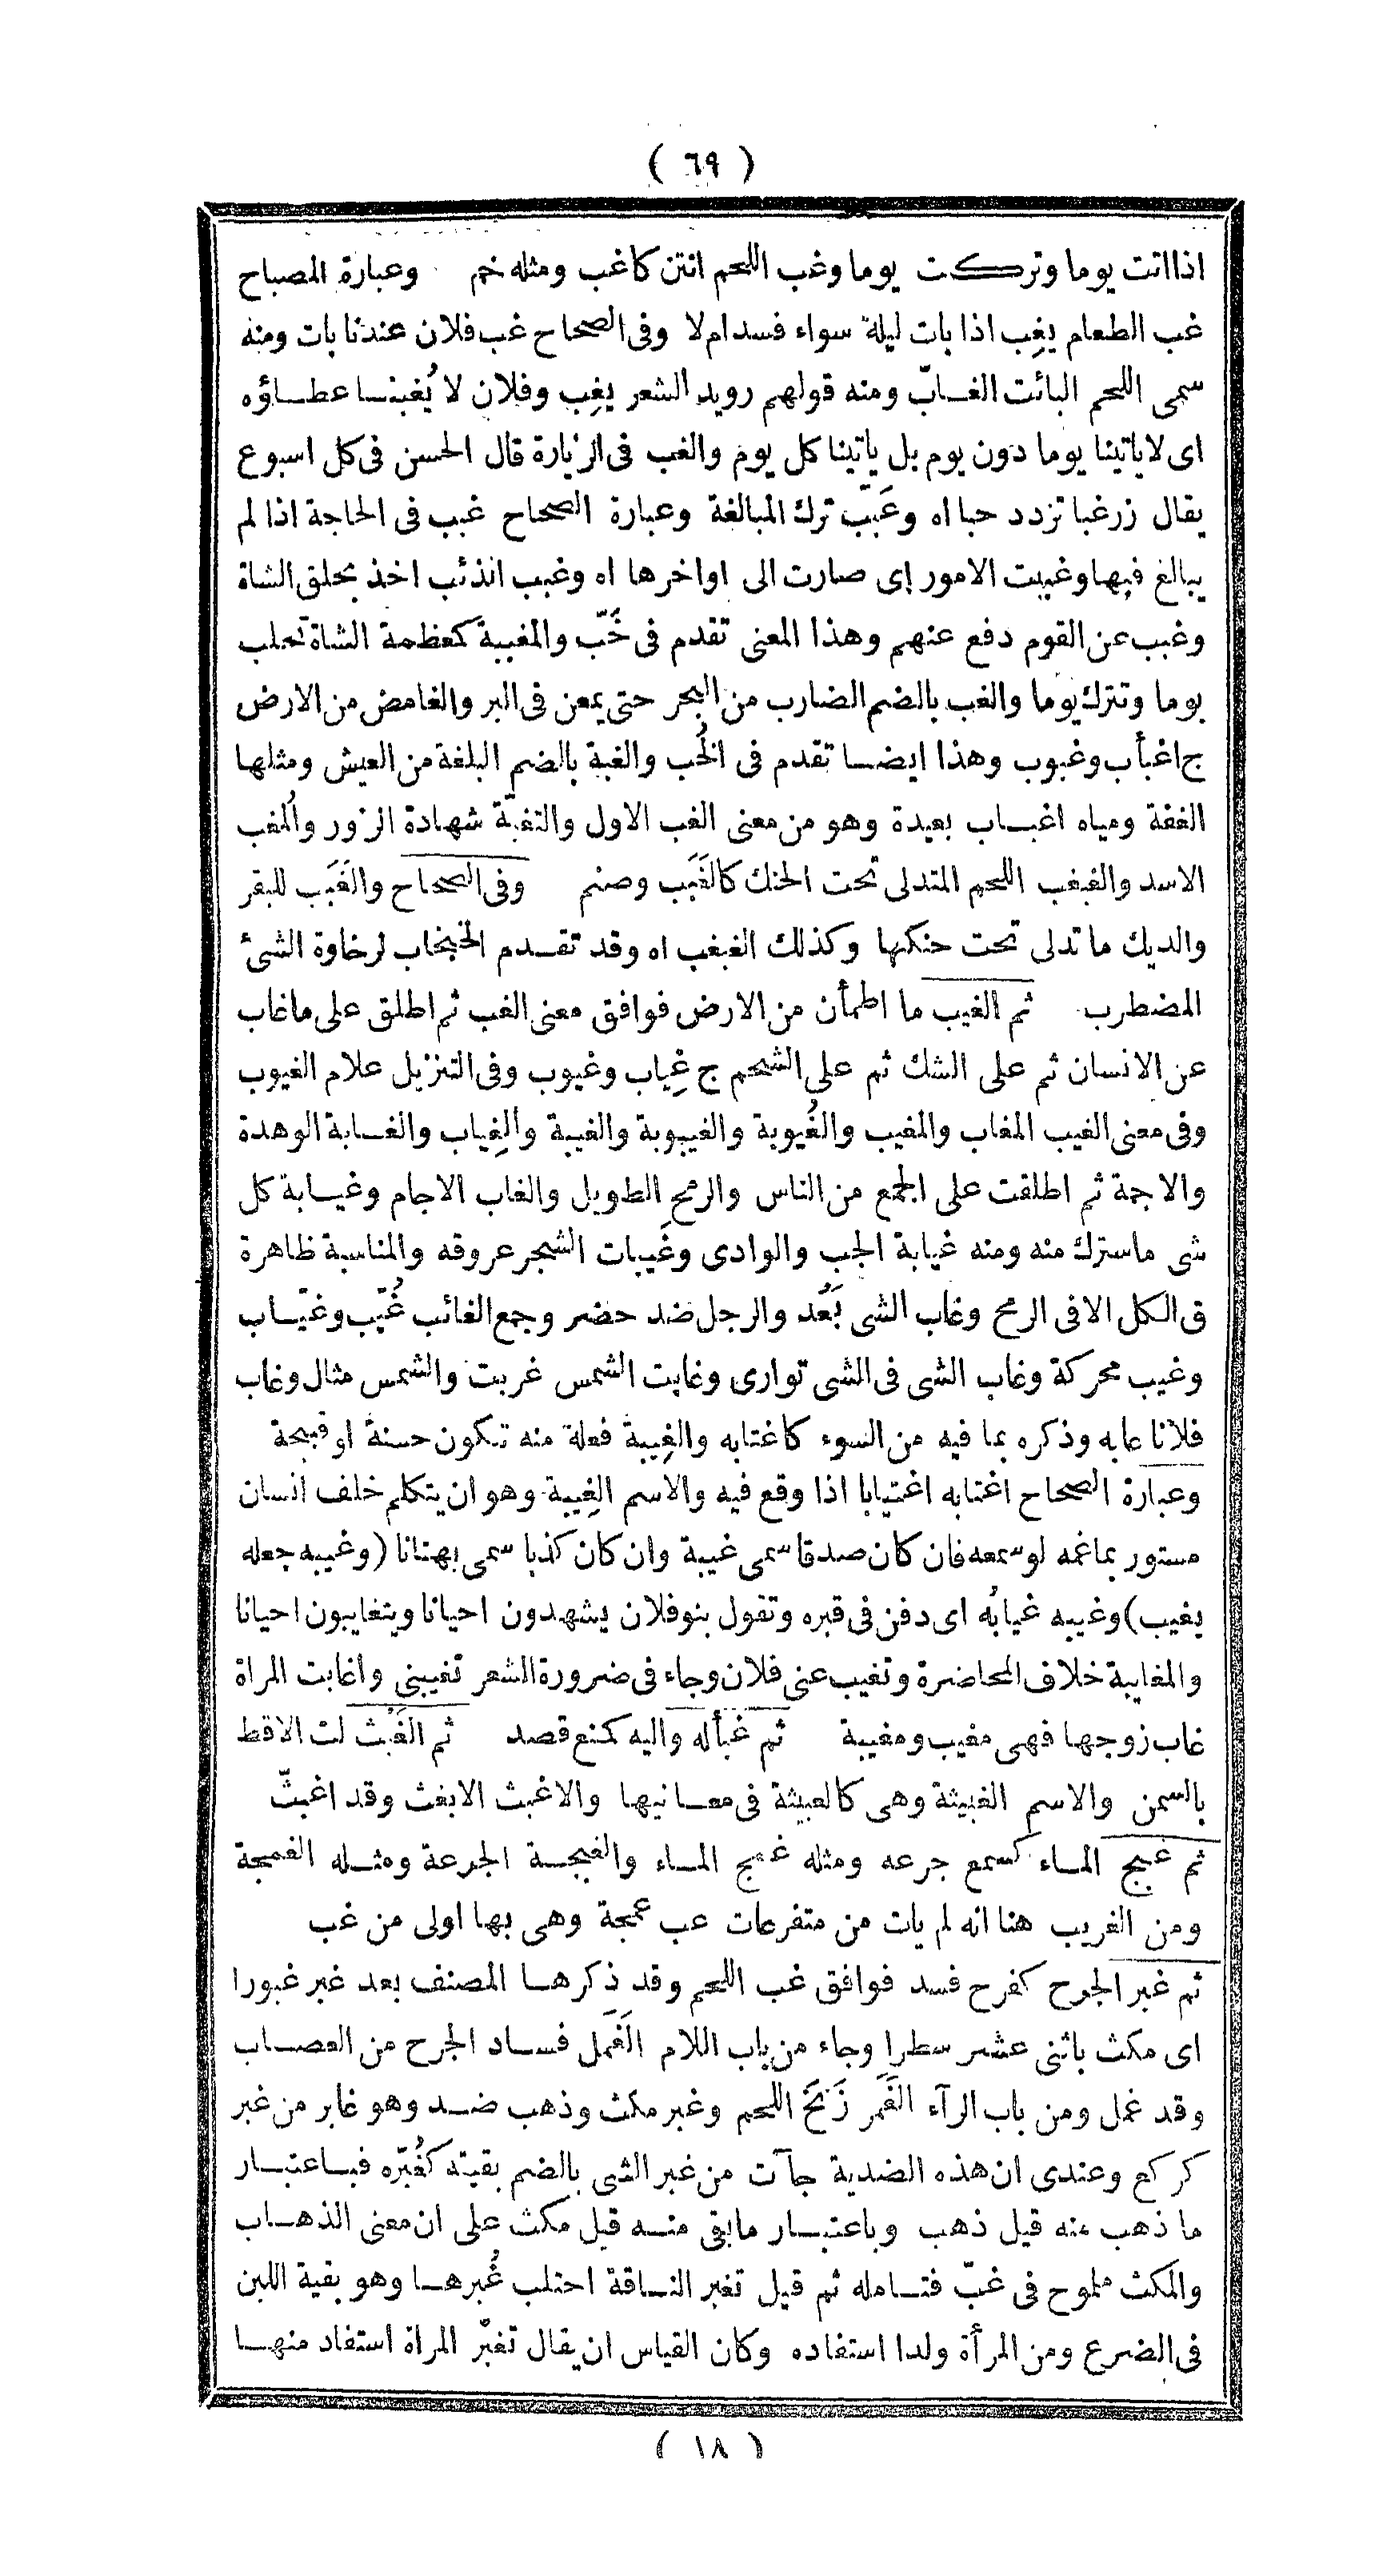 ( ٦٩ )
اذا اتت يوما وتركت يوما وغب اللحم انتن كاغب ومثله خم وعبارة المصباح
غب الطعام يغِب اذا بات ليلة سواء فسد ام لا وفى الصحاح غب فلان عندنا بات ومنه
سمى اللحم البائت الغـابّ ومنه قولهم رويد الشعر يغِب وفلان لا يُغبنـا عطـاؤه
اى لا ياتينا يوما دون يوم بل ياتينا كل يوم والغب فى الزيارة قال الحسن فى كل اسبوع
يقال زر غبا تزدد حبا اه وغَبّب ترك المبالغة وعبارة الصحاح غبب فى الحاجة اذا لم
يبالغ فيها وغببت الامور اى صارت الى اواخرها اه وغبب الذئب اخذ بحلق الشاة
وغبب عن القوم دفع عنهم وهذا المعنى تقدم فى خَبّ والمغببة كمعظمة الشاة تحلب
يوما وتترك يوما والغب بالضم الضارب من البحر حتى يمعن فى البر والغامض من الارض
ج اغبأب وغبوب وهذا ايضـا تقدم فى الخُب والغبة بالضم البلغة من العيش ومثلها
الغفة ومياه اغبـاب بعيدة وهو من معنى الغب الاول والتغبّة شهادة الزور والمُغب
الاسد والغبغب اللحم المتدلى تحت الحنك كالغَبَب وصنم وفى الصحاح والغَبَب للبقر
والديك ما تدلى تحت حنكها وكذلك الغبغب اه وقد تقـدم الخبخاب لرخاوة الشئ
المضطرب ثم الغيب ما اطمأن من الارض فوافق معنى الغب ثم اطلق على ما غاب
عن الانسان ثم على الشك ثم على الشحم ج غِياب وغيوب وفى التنزيل علام الغيوب
وفى معنى الغيب المغاب والمغيب والغُيوبة والغيبوبة والغيبة والغِياب والغـابة الوهدة
والاجمة ثم اطلقت على الجمع من الناس والرمح الطويل والغاب الاجام وغيـابة كل
شى ما سترك منه ومنه غيابة الجب والوادى وغَيبات الشجر عروقه والمناسبة ظاهرة
فى الكل الا فى الرمح وغاب الشى بَعُد والرجل ضد حضر وجمع الغائب غُيّب وغيّـاب
وغيب محركة وغاب الشى فى الشى توارى وغابت الشمس غربت والشمس مثال وغاب
فلانا عابه وذكره بما فيه من السوء كاغتابه والغِيبة فعلة منه تكون حسنة او قبيحة
وعبارة الصحاح اغتابه اغتيابا اذا وقع فيه والاسم الغِيبة وهو ان يتكلم خلف انسان
مستور بما غمه لو سمعه فان كان صدقا سمى غيبة وان كان كذبا سمى بهتانا (وغيبه جعله
يغيب) وغيبه غيابُه اى دفن فى قبره وتقول بنو فلان يشهدون احيانا ويتغايبون احيانا
والمغايبة خلاف المحاضرة وتغيب عنى فلان وجاء فى ضرورة الشعر تغيبنى واغابت المراة
غاب زوجها فهى مغيب ومغيبة ثم غبأ له واليه كمنع قصد ثم الغَبْث لت الاقط
بالسمن والاسم الغبيثة وهى كالعبيثة فى معـانيها والاغبث الابغث وقد اغبثّ
ثم غبج المـاء كسمع جرعه ومثله غمج المـاء والغبجـة الجرعة ومثـله الغمجة
ومن الغريب هنا انه لم يات من متفرعات عب عمجة وهى بها اولى من غب
ثم غبر الجرح كفرح فسد فوافق غب اللحم وقد ذكرهـا المصنف بعد غبر غبورا
اى مكث باثنى عشر سطرا وجاء من باب اللام الغَمَل فسـاد الجرح من العصـاب
وقد غمل ومن باب الرآء الغَمَر زَنَخَ اللحم وغبر مكث وذهب ضـد وهو غابر من غبر
كركع وعندى ان هذه الضدية جآت من غبر الشى بالضم بقيته كغُبّره فبـاعتبـار
ما ذهب منه قيل ذهب وباعتبـار ما بقى منـه قيل مكث على ان معنى الذهـاب
والمكث ملموح فى غبّ فتـامله ثم قيل تغبر النـاقة احتلب غُبرهـا وهو بقية اللبن
فى الضرع ومن المرأة ولدا استفاده وكان القياس ان يقال تغبّر المراة استفاد منهـا
( ١٨ )